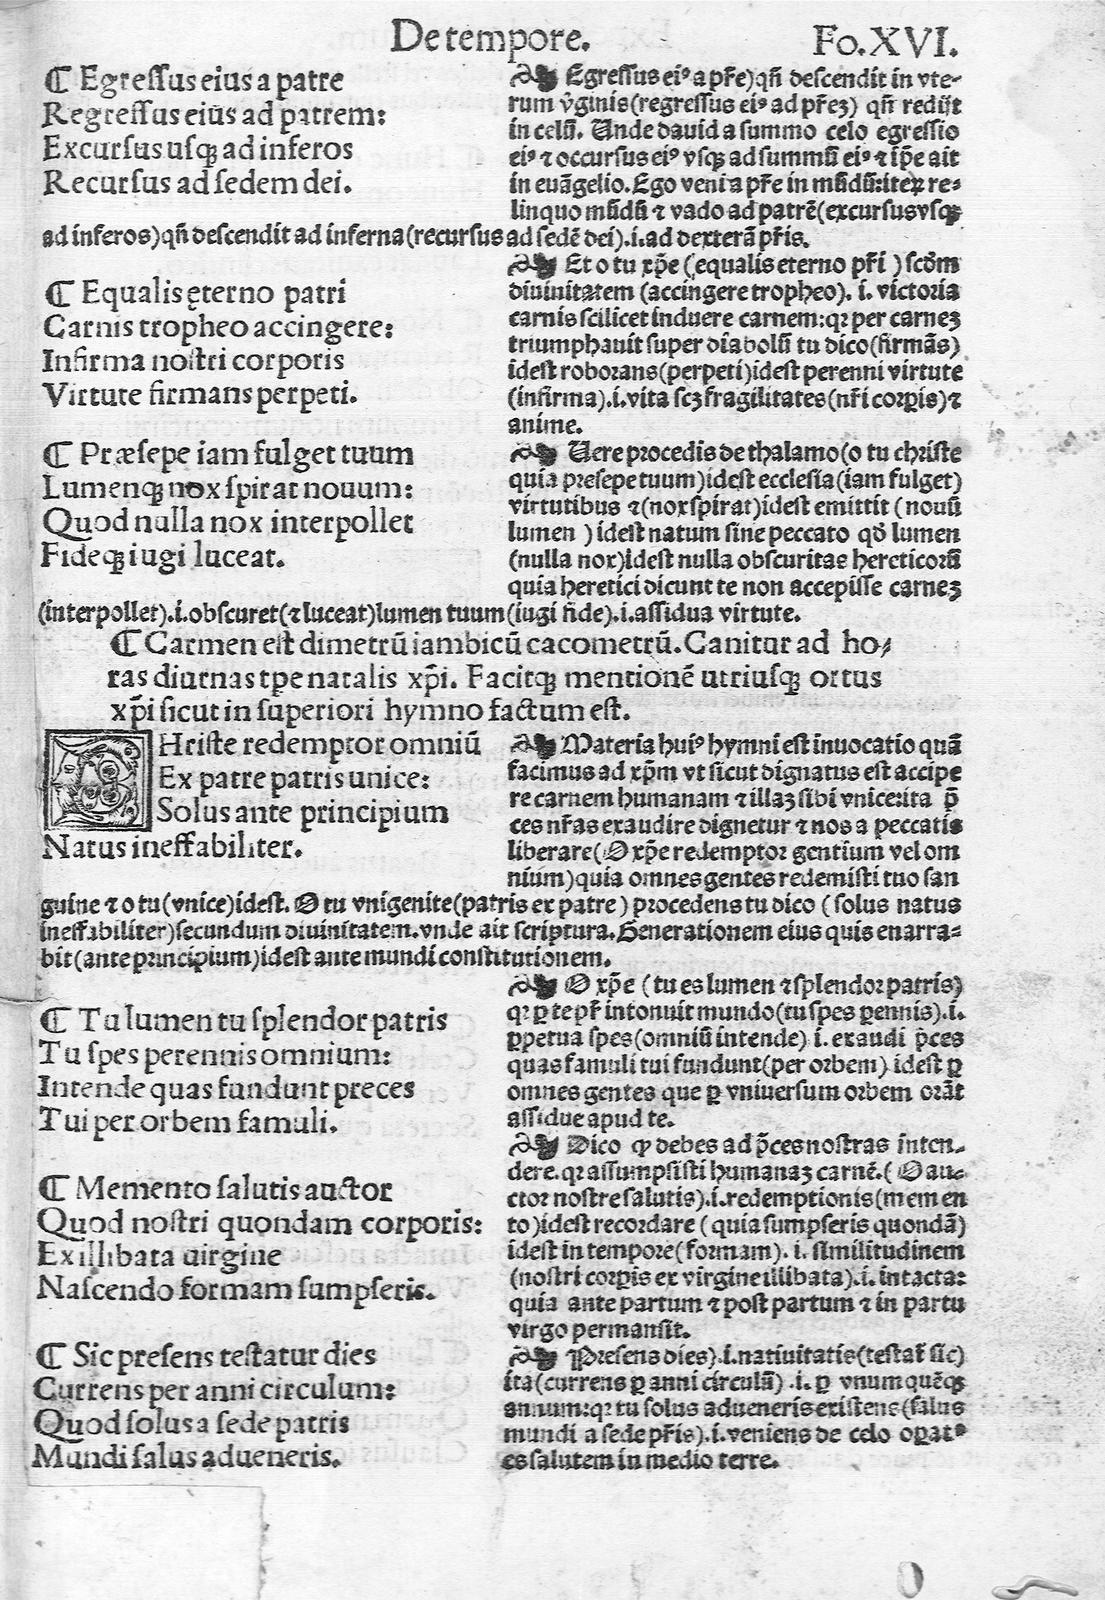 De tempore. Fo. XVI.
¶ Egressus eius a patre
Regressus eius ad patrem:
Excursus usqȝ ad inferos
Recursus ad sedem dei.
Egressus eiꝰ a pr̃e) qñ descendit in vte-
rum v̾ginis (regressus eiꝰ ad pr̃eȝ) qñ redijt
in celũ. Unde dauid a summo celo egressio
eiꝰ ⁊ occursus eiꝰ vsqȝ ad summũ eiꝰ ⁊ ip̃e ait
in euãgelio. Ego veni a pr̃e in mũdũ: iteꝝ re-
linquo mũdũ ⁊ vado ad patrẽ (excursus vsqȝ
ad inferos) qñ descendit ad inferna (recursus ad sedẽ dei) .i. ad dexterã pr̃is.
¶ Equalis ęterno patri
Carnis tropheo accingere:
Infirma nostri corporis
Virtute firmans perpeti.
Et o tu xp̃e (equalis eterno pr̃i) scd̃m
diuinitatem (accingere tropheo). i. victoria
carnis scilicet induere carnem: qꝛ per carneȝ
triumphauit super diabolũ tu dico (firmãs)
idest roborans (perpeti) idest perenni virtute
(infirma) .i. vita scȝ fragilitates (nr̃i corꝑis) ⁊
anime.
¶ Præsepe iam fulget tuum
Lumenqȝ nox spirat nouum:
Quod nulla nox interpollet
Fideqȝ iugi luceat.
Uere procedis de thalamo (o tu christe
quia presepe tuum) idest ecclesia (iam fulget)
virtutibus ⁊ (nox spirat) idest emittit (nouũ
lumen ) idest natum sine peccato qd̃ lumen
(nulla nox) idest nulla obscuritas hereticorũ
quia heretici dicunt te non accepisse carneȝ
(interpollet) .i. obscuret (⁊ luceat) lumen tuum (iugi fide) .i. assidua virtute.
¶ Carmen est dimetrũ iambicũ cacometrũ. Canitur ad ho-
ras diurnas tp̃e natalis xp̃i. Facitqȝ mentionẽ utriusqȝ ortus
xp̃i sicut in superiori hymno factum est.
CHriste redemptor omniũ
Ex patre patris unice:
Solus ante principium
Natus ineffabiliter.
Materia huiꝰ hymni est inuocatio quã
facimus ad xp̃m vt sicut dignatus est accipe
re carnem humanam ⁊ illaȝ sibi vnice: ita p̃
ces nr̃as exaudire dignetur ⁊ nos a peccatis
liberare (O xp̃e redemptor gentium vel om
nium) quia omnes gentes redemisti tuo san
guine ⁊ o tu (vnice) idest. O tu vnigenite (patris ex patre) procedens tu dico (solus natus
ineffabiliter) secundum diuinitatem. vnde ait scriptura. Generationem eius quis enarra-
bit (ante principium) idest ante mundi constitutionem.
¶ Tu lumen tu splendor patris
Tu spes perennis omnium:
Intende quas fundunt preces
Tui per orbem famuli.
O xp̃e (tu es lumen ⁊ splendor patris)
qꝛ ꝑ te pr̃ intonuit mundo (tu spes ꝑennis) .i.
ꝑpetua spes (omniũ intende) i. exaudi p̃ces
quas famuli tui fundunt (per orbem) idest ꝑ
omnes gentes que ꝑ vniuersum orbem orãt
assidue apud te.
¶ Memento salutis auctor
Quod nostri quondam corporis:
Ex illibata uirgine
Nascendo formam sumpseris.
Dico ꝙ debes ad p̃ces nostras inten-
dere. qꝛ assumpsisti humanaȝ carnẽ. (O au-
ctor nostre salutis) .i. redemptionis (memen
to) idest recordare (quia sumpseris quondã)
idest in tempore (formam) .i. similitudinem
(nostri corꝑis ex virgine illibata) .i. intacta:
quia ante partum ⁊ post partum ⁊ in partu
virgo permansit.
¶ Sic presens testatur dies
Currens per anni circulum:
Quod solus a sede patris
Mundi salus adueneris.
Presens dies) .i. natiuitatis (testat̃ sic)
ita (currens ꝑ anni circulũ) .i. ꝑ vnumquẽqȝ
annum: qꝛ tu solus adueneris existens (salus
mundi a sede pr̃is) .i. veniens de celo oꝑatꝰ
es salutem in medio terre.